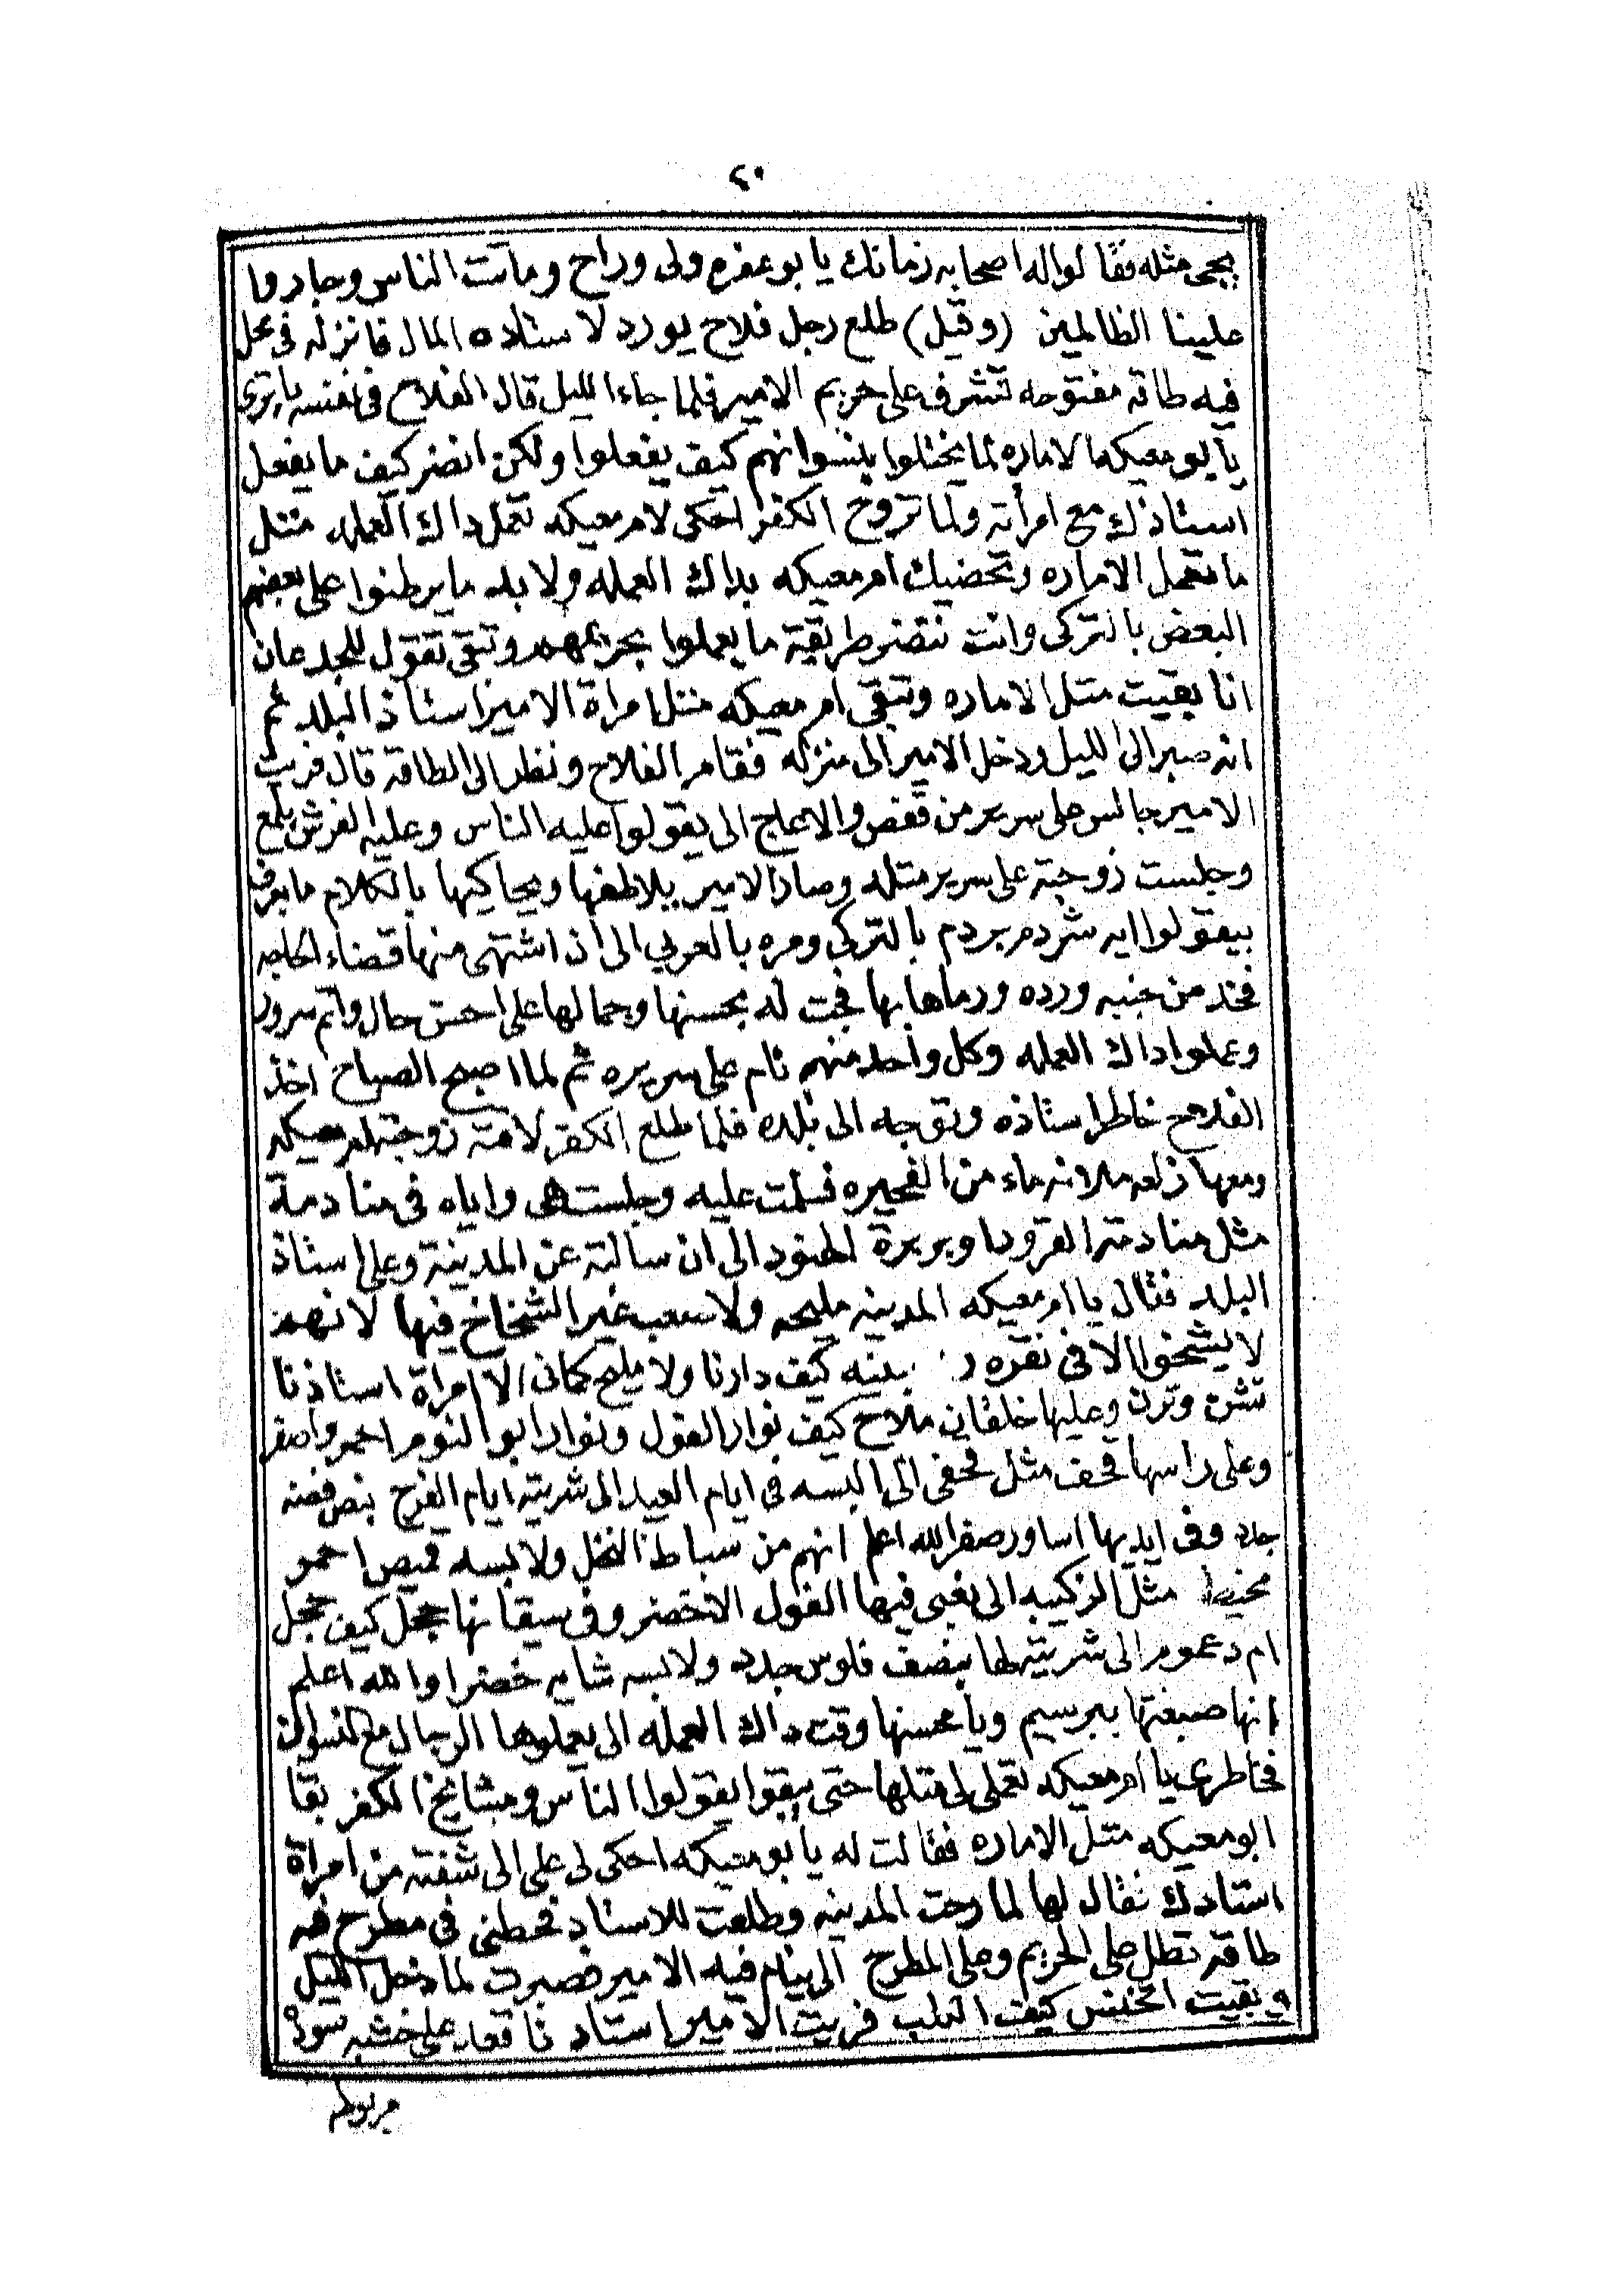 ٢٠
يجى مثله فقالوا له اصحابه زمانك يا بو عفره ولى وراح وماتت الناس وجاروا
علينا الظالمين (وقيل) طلع رجل فلاح يورد لاستاده المال فانزله فى محل
فيه طاقه مفتوحه تشرف على حريم الامير فلما جاء الليل قال الفلاح فى نفسه يا ترى
يا بو معيكه الاماره لما يختلوا بنسوانهم كيف يفعلوا ولكن انضر كيف ما يفعل
استاذك مع امرأته ولما تروح الكفر احكى لام معيكه تعمل داك العمله مثل
ما تعمل الاماره وتحضيك ام معيكه بداك العمله ولا بد ما يرطنوا على بعضهم
البعض بالتركى وانت تنضر طريقة ما يعملوا بحريمهم وتبقى تقول للجدعان
انا بقيت متل الاماره وتبقى ام معيكه متل امراة الامير استاذ البلد ثم
انه صبر الى الليل ودخل الامير الى منزله فقام الفلاح ونظر الى الطاقه قال فريت
الامير جالس على سرير من قفص والا عاج الى يقولوا عليه الناس وعليه الفرش يلمع
وجلست زوجته على سرير متله وصار الامير يلاطفها ويحاكيها بالكلام ما بعرف
بيقولوا ايه شردم بردم بالتركى ومره بالعربي الى ان اشتهى منها قضاء الحاجه
فخد من جنبه ورده ورماها بها فجت له بحسنها وجمالها على احسن حال واتم سرور
وعملوا داك العمله وكل واحد منهم نام على سريره ثم لما اصبح الصباح اخذ
الفلاح خاطر استاذه وتوجه الى بلده فلما طلع الكفر لاقته زوجته ام معيكه
ومعها زلعه ملانه ماء من الفحيره فسلمت عليه وجلست هى واياه فى منادمة
مثل منادمة القرود او بربرة الهنود الى ان سالته عن المدينة وعلى استاذ
البلد فقال يا ام معيكه المدينه مليحه ولا صعب غير الشخاخ فيها لانهم
لا يشخوا الا فى نقره بينه كيف دارنا ولا مليح كمان الا امراة استاذنا
تشن وترن وعليها خلقان ملاح كيف نوار الفول ونوار ابو النوم احمر واصفر
وعلى راسها قحف مثل قحفى الى البسه فى ايام العيد الى شريته ايام الفرح بنص فضه
جدد وفى ايديها اساور صفر الله اعلم انهم من سباط النخل ولابسه قميص احمر
مخيط مثل الزكيبه الى نعبى فيها الفول الاخضر وفى سيقانها حجل كيف حجل
ام دعموم الى شريته لها بنصف فلوس جدد ولابسه شايه خضرا والله اعلم
انها صبغتها ببرسيم ويا محسنها وقت داك العمله الى يعملوها الرجال مع النسوان
فخاطرى يا ام معيكه تعملى لى متلها حتى يبقوا يقولوا الناس ومشايخ الكفر بقا
ابو معيكه متل الاماره فقالت له يا بو معيكه احكى لى على الى شفته من امراة
استادك فقال لها لما رحت المدينه وطلعت للاستاد فحطنى فى مطرح فيه
طاقه تطل على الحريم وعلى المطرح الى ينام فيه الامير فصبرت لما دخل الليل
وبقيت اتخنس كيف التلب فريت الامير استادنا قعد على خشبه سوده
مربوطه